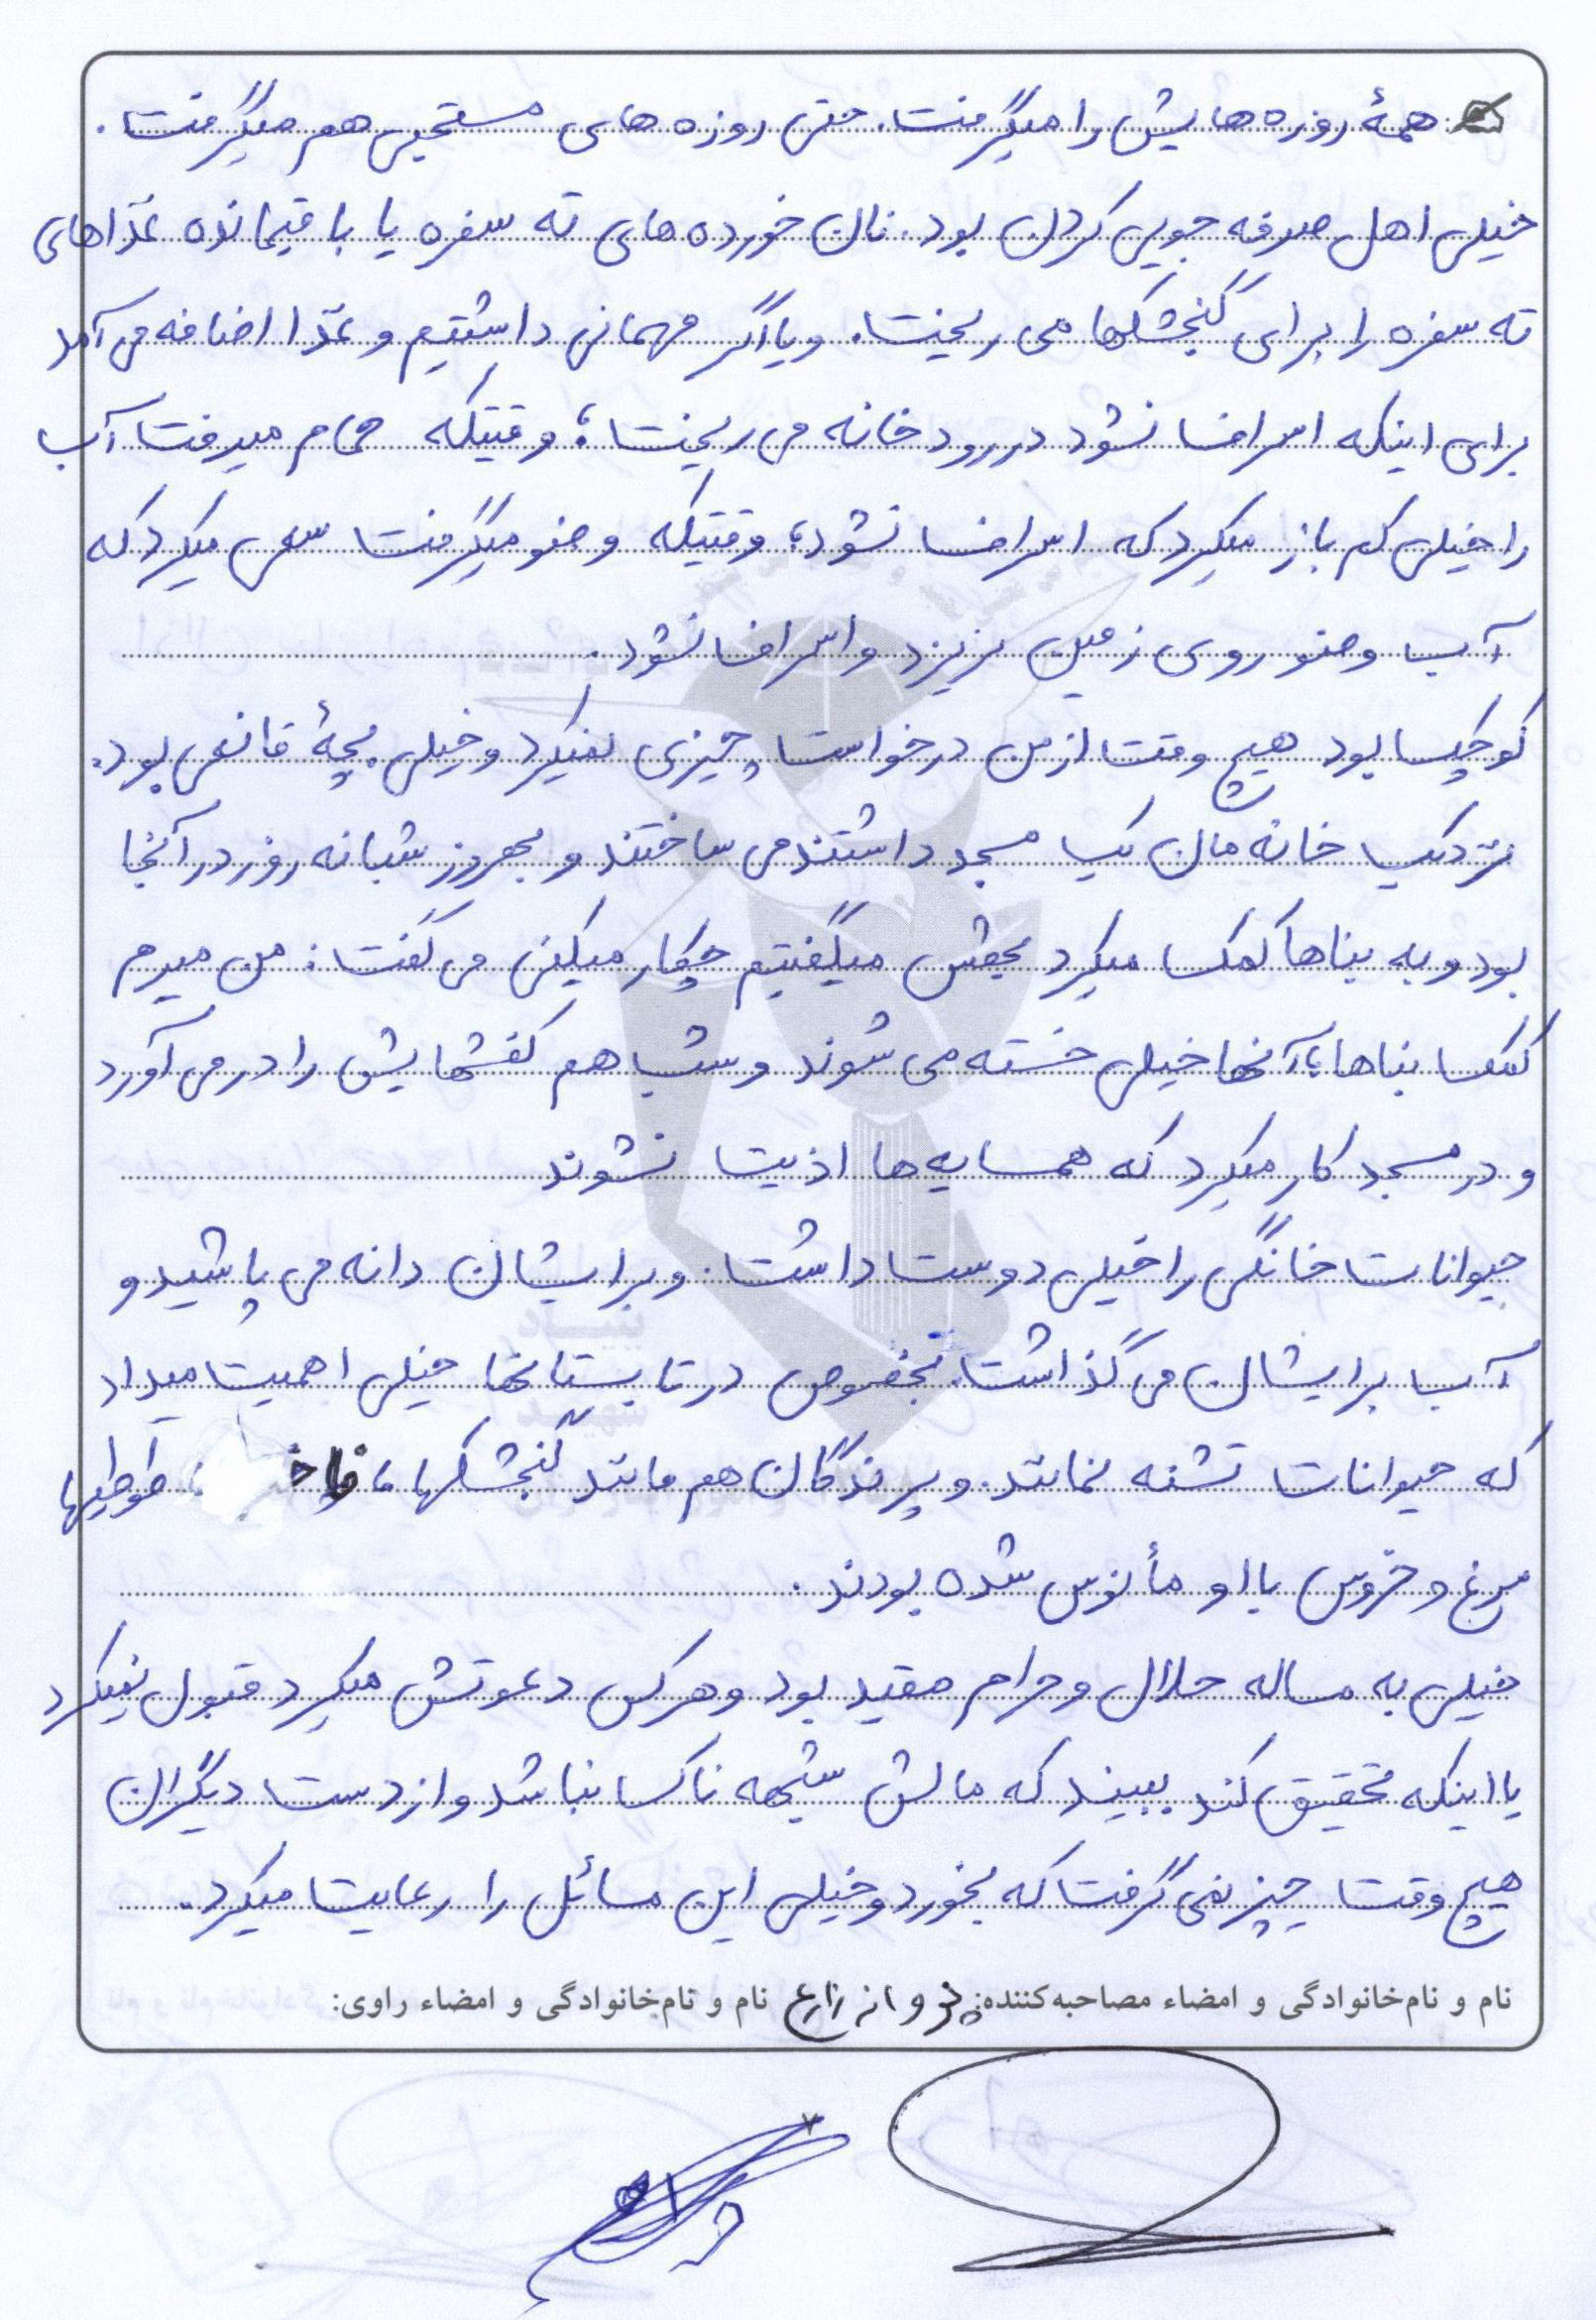 همهٔ روزه هایش را میگرفت. حتی روزه های مستحبی هم میگرفت.
خیلی اهل صرفه جویی کردن بود. نان خورده های ته سفره یا باقیمانده غذاهای
ته سفره را برای گنجشکها می ریخت. و یا اگر مهمانی داشتیم و غذا اضافه می آمد
برای اینکه اسراف نشود در رودخانه می ریخت؛ وقتیکه حمام میرفت آب
را خیلی کم باز میکرد که اسراف نشود؛ وقتیکه وضو میگرفت سعی میکرد که
آب وضو روی زمین نریزد و اسراف نشود.
کوچک بود هیچ وقت از من درخواست چیزی نمیکرد و خیلی بچهٔ قانعی بود.
نزدیک خانه مان یک مسجد داشتند می ساختند و بهروز شبانه روز در آنجا
بود و به بناها کمک میکرد بهش میگفتیم چکار میکنی می گفت: من میرم
کمک بناها، آنها خیلی خسته می شوند و شب هم کفشهایش را در می آورد
و در مسجد کار میکرد که همسایه ها اذیت نشوند
حیوانات خانگی را خیلی دوست داشت. و برایشان دانه می پاشید و
آب برایشان می گذاشت. بخصوص در تابستانها خیلی اهمیت میداد
که حیوانات تشنه نمانند. و پرندگان هم مانند گنجشکها، طوطیها
مرغ و خروس با او مأنوس شده بودند.
خیلی به مساله حلال و حرام مقید بود و هر کس دعوتش میکرد قبول نمیکرد
یا اینکه تحقیق کند ببیند که مالش شبهه ناک نباشد و از دست دیگران
هیچ وقت چیز نمی گرفت که بخورد و خیلی این مسائل را رعایت میکرد.
نام و نام‌خانوادگی و امضاء مصاحبه‌کننده: پروانه زارع نام و نام‌خانوادگی و امضاء راوی: